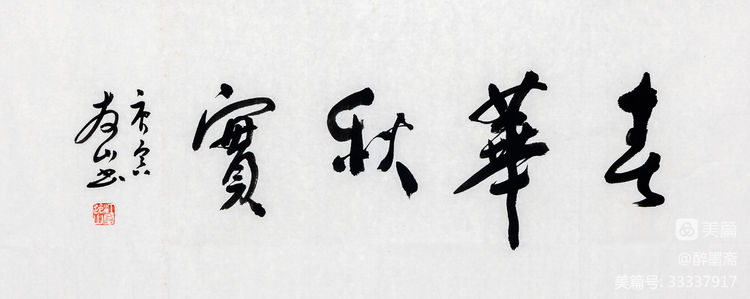 春華秋實
美篇
@醉墨斋
美篇号: 33337917